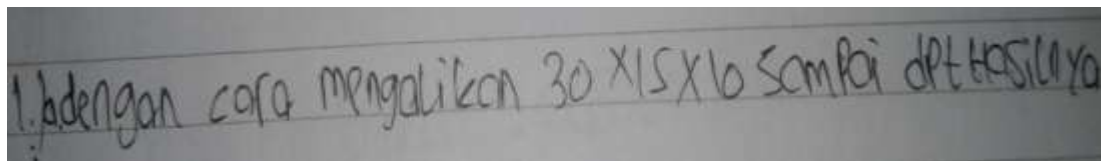 1. b. dengan cara mengalikan 30 x 15 x 10 sampai dpt Hasilnya